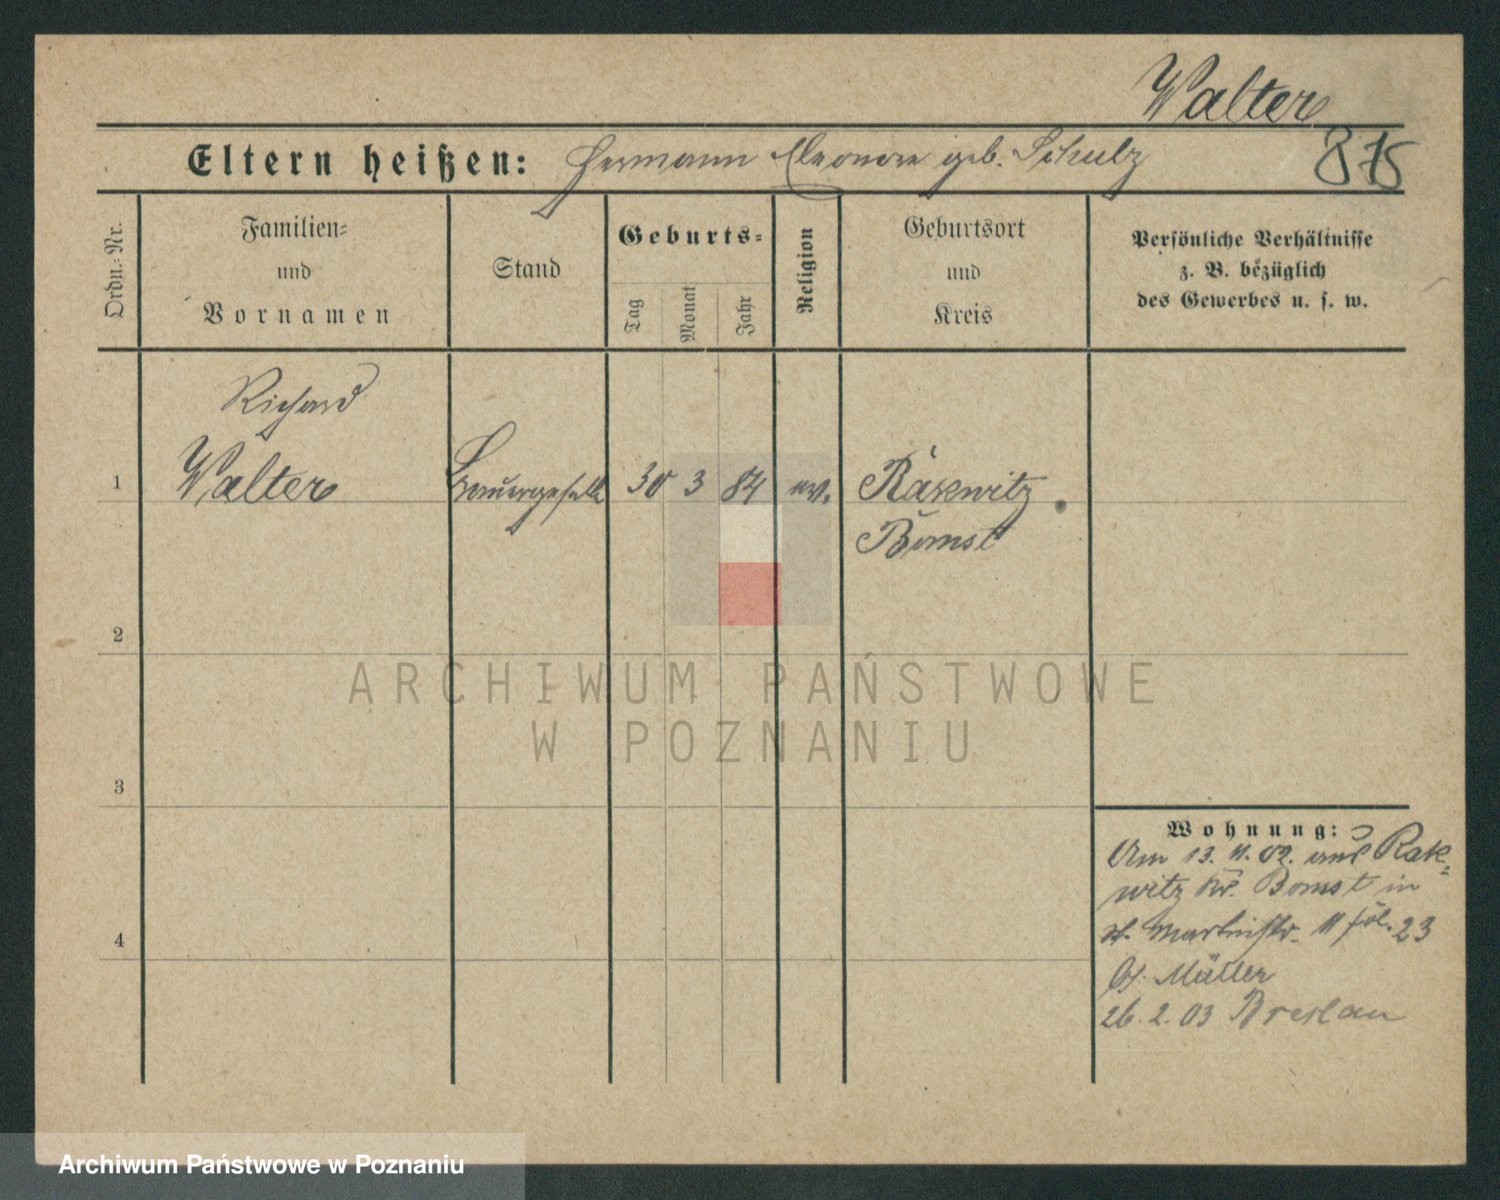 Walter
875
Eltern heißen: Hermann Eleonore geb. Schulz
Ordn.-Nr.
Familien-
und
Vornamen
Stand
Geburts-
Tag
Monat
Jahr
Religion
Geburtsort
und
Kreis
Persönliche Verhältnisse
z. B. bezüglich
des Gewerbes u. s. w.
Richard
1 Walter Brauergeselle 30 3 84 ev. Rakwitz
Bomst
2
3
4
Wohnung:
Am 13. 11. 02. aus Rak-
witz Kr. Bomst in
St. Martinstr. 11 fol. 23
b/. Müller
26. 2. 03 Breslau
ARCHIWUM PAŃSTWOWE
W POZNANIU
Archiwum Państwowe w Poznaniu